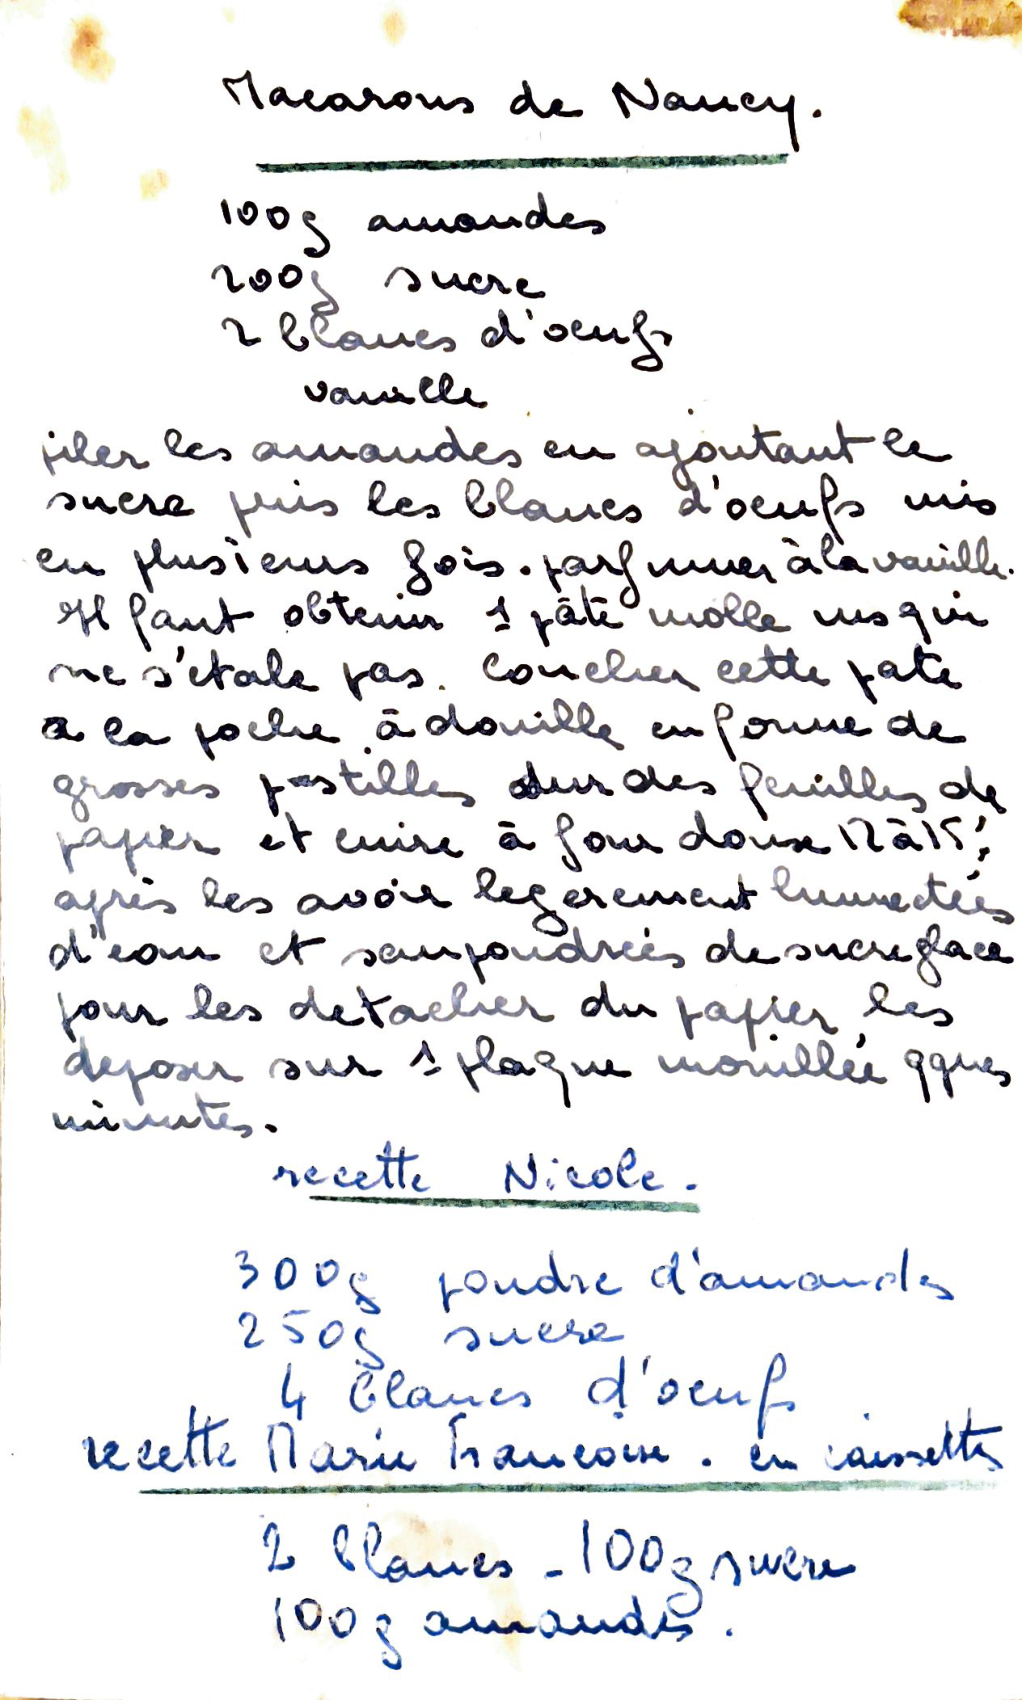 Macarons de Nancy.
100g amandes
200g sucre
2 blancs d'oeufs
vanille
piler les amandes en ajoutant le
sucre puis les blancs d'oeufs mis
en plusieurs fois. parfumer à la vanille.
Il faut obtenir 1 pâte molle ms qui
ne s'étale pas. Coucher cette pate
a la poche à douille en forme de
grosses pastilles sur des feuilles de
papier et cuire à four doux 12 à 15'
après les avoir legerement humectées
d'eau et saupoudrées de sucre glace
pour les detacher du papier les
deposer sur 1 plaque mouillée qques
minutes.
recette Nicole.
300g poudre d'amandes
250g sucre
4 blancs d'oeufs
recette Marie Francoise. en caissettes
2 blancs - 100g sucre
100g amandes.